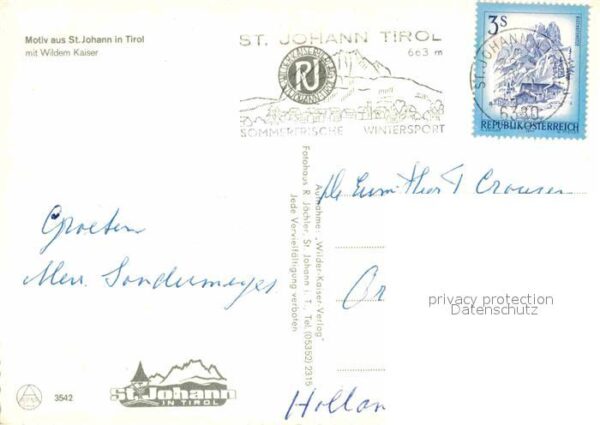 Motiv aus St. Johann in Tirol
mit Wildem Kaiser
ST. JOHANN TIROL
663 m
SOMMERFRISCHE WINTERSPORT
3S
REPUBLIK ÖSTERREICH
ST. JOHANN
6380
Groeten
Mevr. Sondermeyer.
Aufnahme: „Wilder-Kaiser-Verlag"
Fotohaus R. Jöchler, St. Johann i. T., Tel. (05352) 2315
Jede Vervielfältigung verboten
Or
Hollan
privacy protection
Datenschutz
3542
St. Johann
IN TIROL